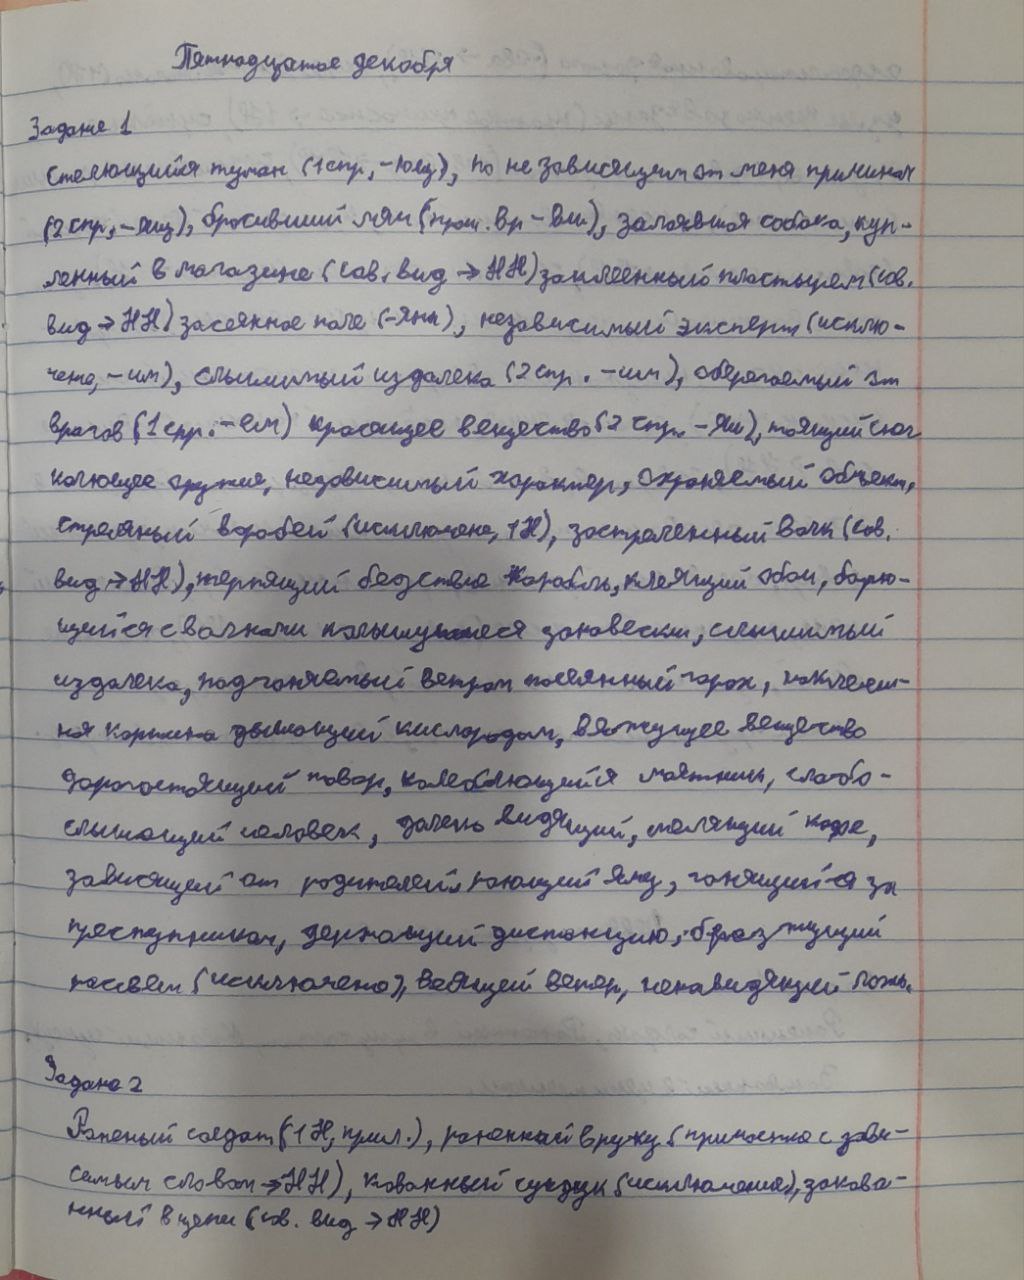 Пятнадцатое декабря
Задание 1
Стелющийся туман (1 спр, -ющ), по не зависящим от меня причинам
(2 спр, -ящ), бросивший мяч (прош. вр - вш), залаявшая собака, куп-
ленный в магазине (сов. вид → НН) заклеенный пластырем (сов.
вид → НН) засеянное поле (-янн), независимый эксперт (исклю-
чение, -им), слышимый издалека (2 спр. -им), оберегаемый от
врагов (1 спр. -ем) красящее вещество (2 спр. -ящ), тающий снег
колющее оружие, независимый характер, охраняемый объект,
стреляный воробей (исключение, 1Н), застреленный волк (сов.
вид → НН), терпящий бедствие корабль, клеящий обои, борю-
щийся с волнами колышущиеся занавески, слышимый
издалека, подгоняемый ветром посеянный горох, наклеен-
ная картина дышащий кислородом, вяжущее вещество
дорогостоящий товар, колеблющийся маятник, слабо-
слышащий человек, далеко видящий, мелящий кофе,
зависящей от родителей, роющий яму, гонящийся за
преступником, держащий дистанцию, брезжущий
рассвет (исключено), веящей ветер, ненавидящий ложь.
Задание 2
Раненый солдат (1 Н, прил.), раненный в руку (причастие с зави-
симым словом → НН), кованный сундук (исключения), закова-
нный в цепи (сов. вид → НН)